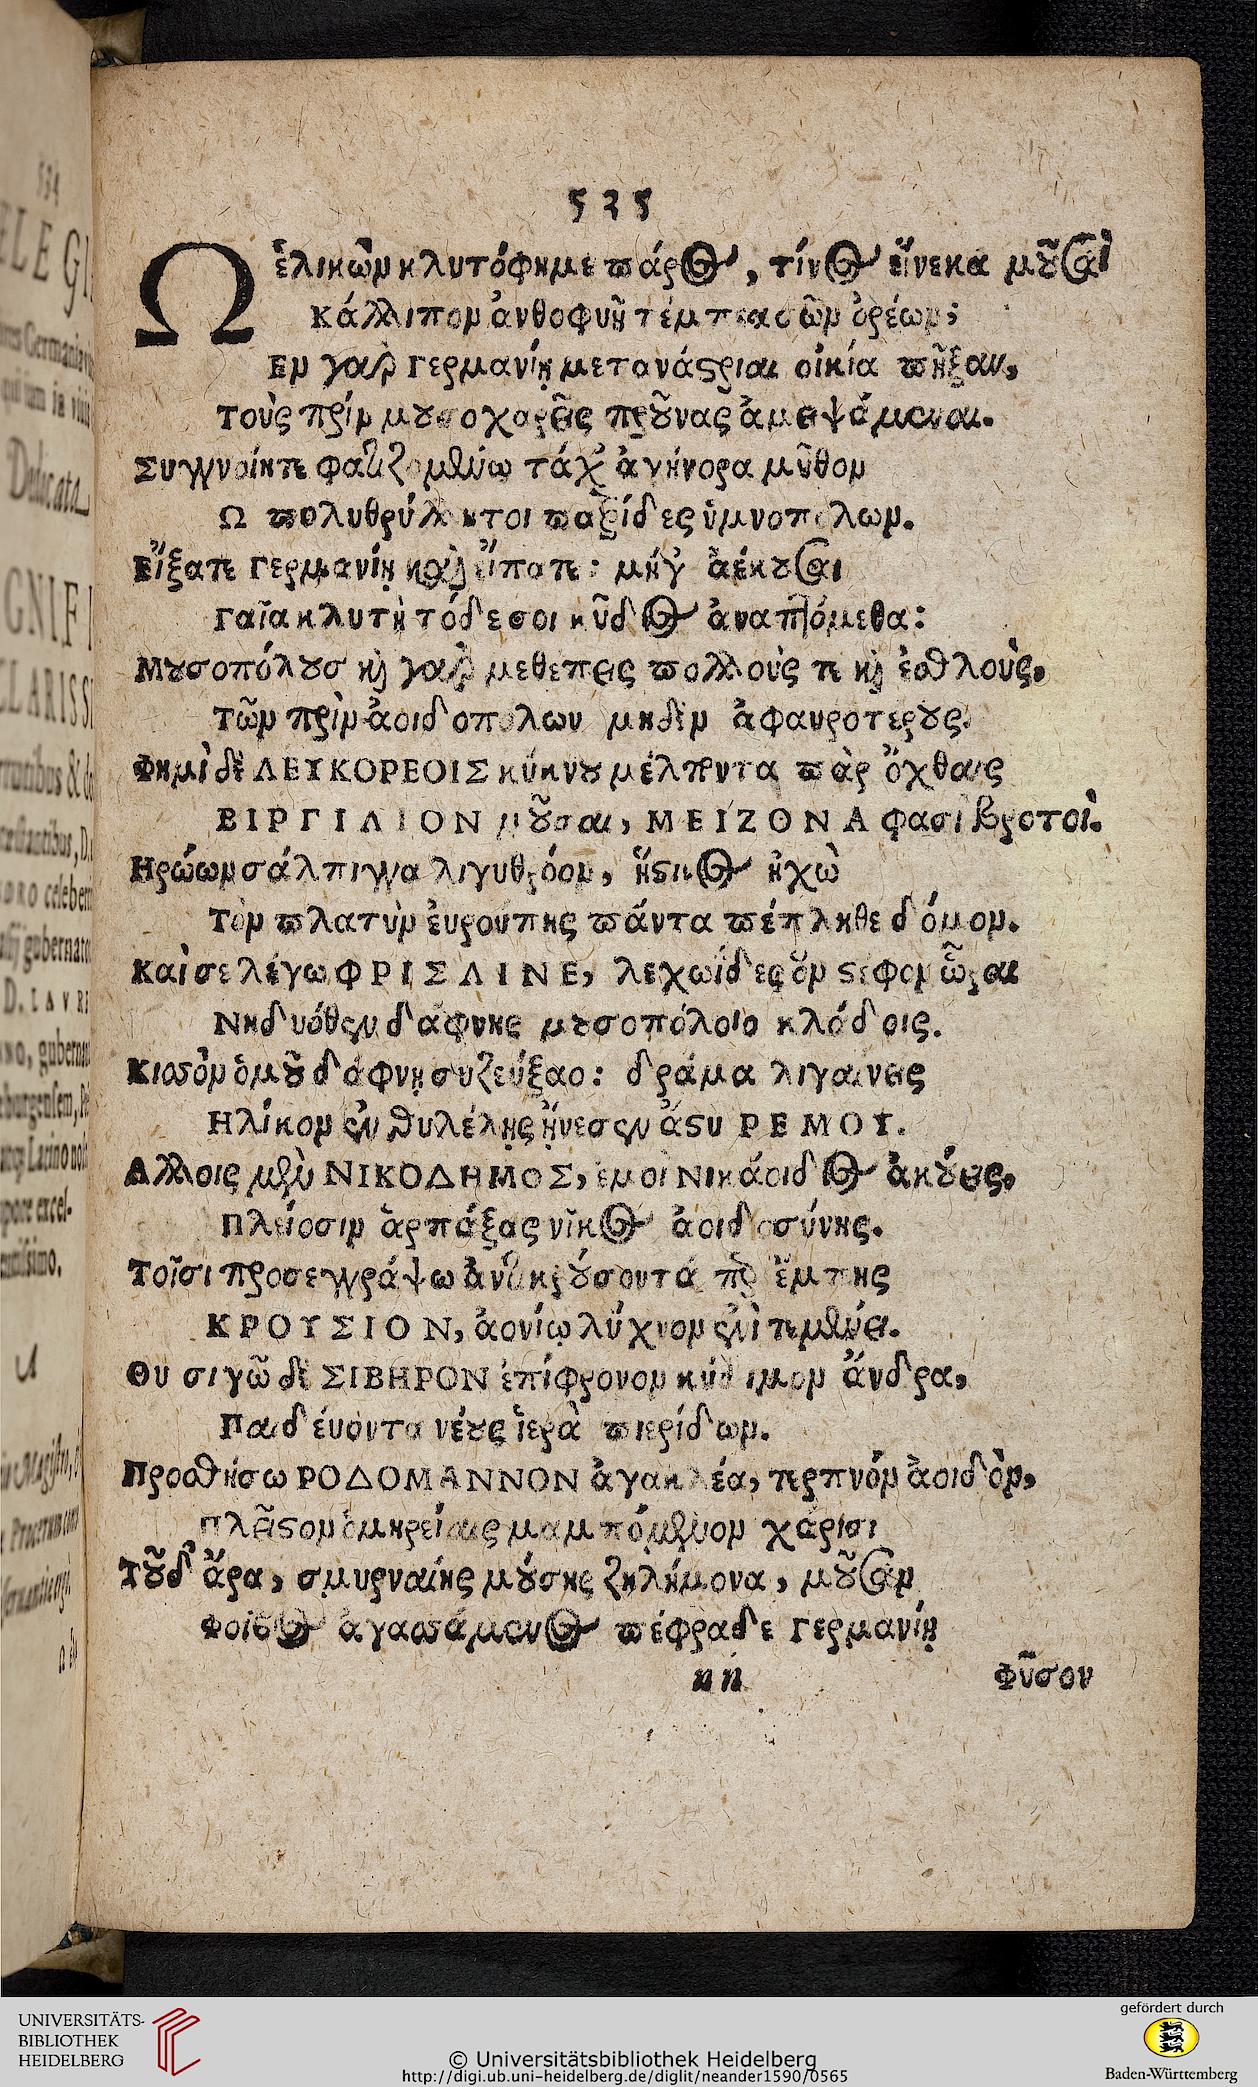 525
Ω ἑλικὼν κλυτόφημε πάρος, τίνος εἵνεκα μοῦσαι
Κάλλιπον ἀνθοφυῆ τέμπεα σῶν ὀρέων;
Ἐν γὰρ Γερμανίῃ μετανάστριαι οἰκία πῆξαν,
Τοὺς πρίν μουσοχαρεῖς πρῶνας ἀμειψάμεναι.
Συγγνοίητε φατιζομένῳ τάχ' ἀγήνορα μῦθον
Ω πολυθρύλλητοι πατρίδες ὑμνοπόλων.
Εἴξατε Γερμανίῃ καὶ εἴπατε: μήγ' ἀέκουσαι
Γαῖα κλυτὴ τόδε σοι κῦδος ἀναπτόμεθα:
Μουσοπόλους καὶ γὰρ μεθέπεις πολλούς τε καὶ ἐσθλοὺς,
Τῶν πρὶν ἀοιδοπόλων μηδὲν ἀφαυροτέρους.
Φημὶ δὲ ΛΕΥΚΟΡΕΟΙΣ κύκνου μέλποντα παρ' ὄχθαις
ΒΙΡΓΙΛΙΟΝ μοῦσαι, ΜΕΙΖΟΝΑ φασὶ βροτοὶ.
Ηρώων σάλπιγγα λιγυθρόον, ἥστινος ἠχὼ
Τὸν πλατὺν ἐυρούπης πάντα πέπληθε δόμον.
Καὶ σε λέγω ΦΡΙΣΛΙΝΕ, λεχωΐδες ὃν στέφον ὧραι
Νηδυόθεν δάφνης μουσοπόλοιο κλάδοις.
Κισσὸν ὁμοῦ δάφνῃ συζεύξαο: δράμα λιγαίνεις
Ηλίκον ἐν θυλέλῃς ᾔνεσεν ἄστυ ΡΕΜΟΥ.
Αλλοις μὲν ΝΙΚΟΔΗΜΟΣ, ἐμοὶ Νικάοιδος ἀκούεις,
Πλείοσιν ἁρπάξας νῖκος ἀοιδοσύνης.
Τοῖσι προσεγγράψω ἀντικρούσοντά περ ἔμπης
ΚΡΟΥΣΙΟΝ, ἀονίῳ λύχνον ἐνὶ τεμένει.
Ου σιγῶ δὲ ΣΙΒΗΡΟΝ ἐπίφρονον κύδιμον ἄνδρα,
Παιδέυοντα νέους ἱερὰ πιερίδων.
Προσθήσω ΡΟΔΟΜΑΝΝΟΝ ἀγακλέα, τερπνόν ἀοιδὸν,
Πλεῖστον ὁμηρείαις μαμπόμενον χάρισι
Τοῦδ' ἄρα, σμυρναίης μούσης ζηλήμονα, μοῦσαν
Φοῖβος ἀγασσάμενος πέφραδε Γερμανίῃ
Φῦσον
UNIVERSITÄTS-
BIBLIOTHEK
HEIDELBERG
© Universitätsbibliothek Heidelberg
http://digi.ub.uni-heidelberg.de/diglit/neander1590/0565
gefördert durch
Baden-Württemberg